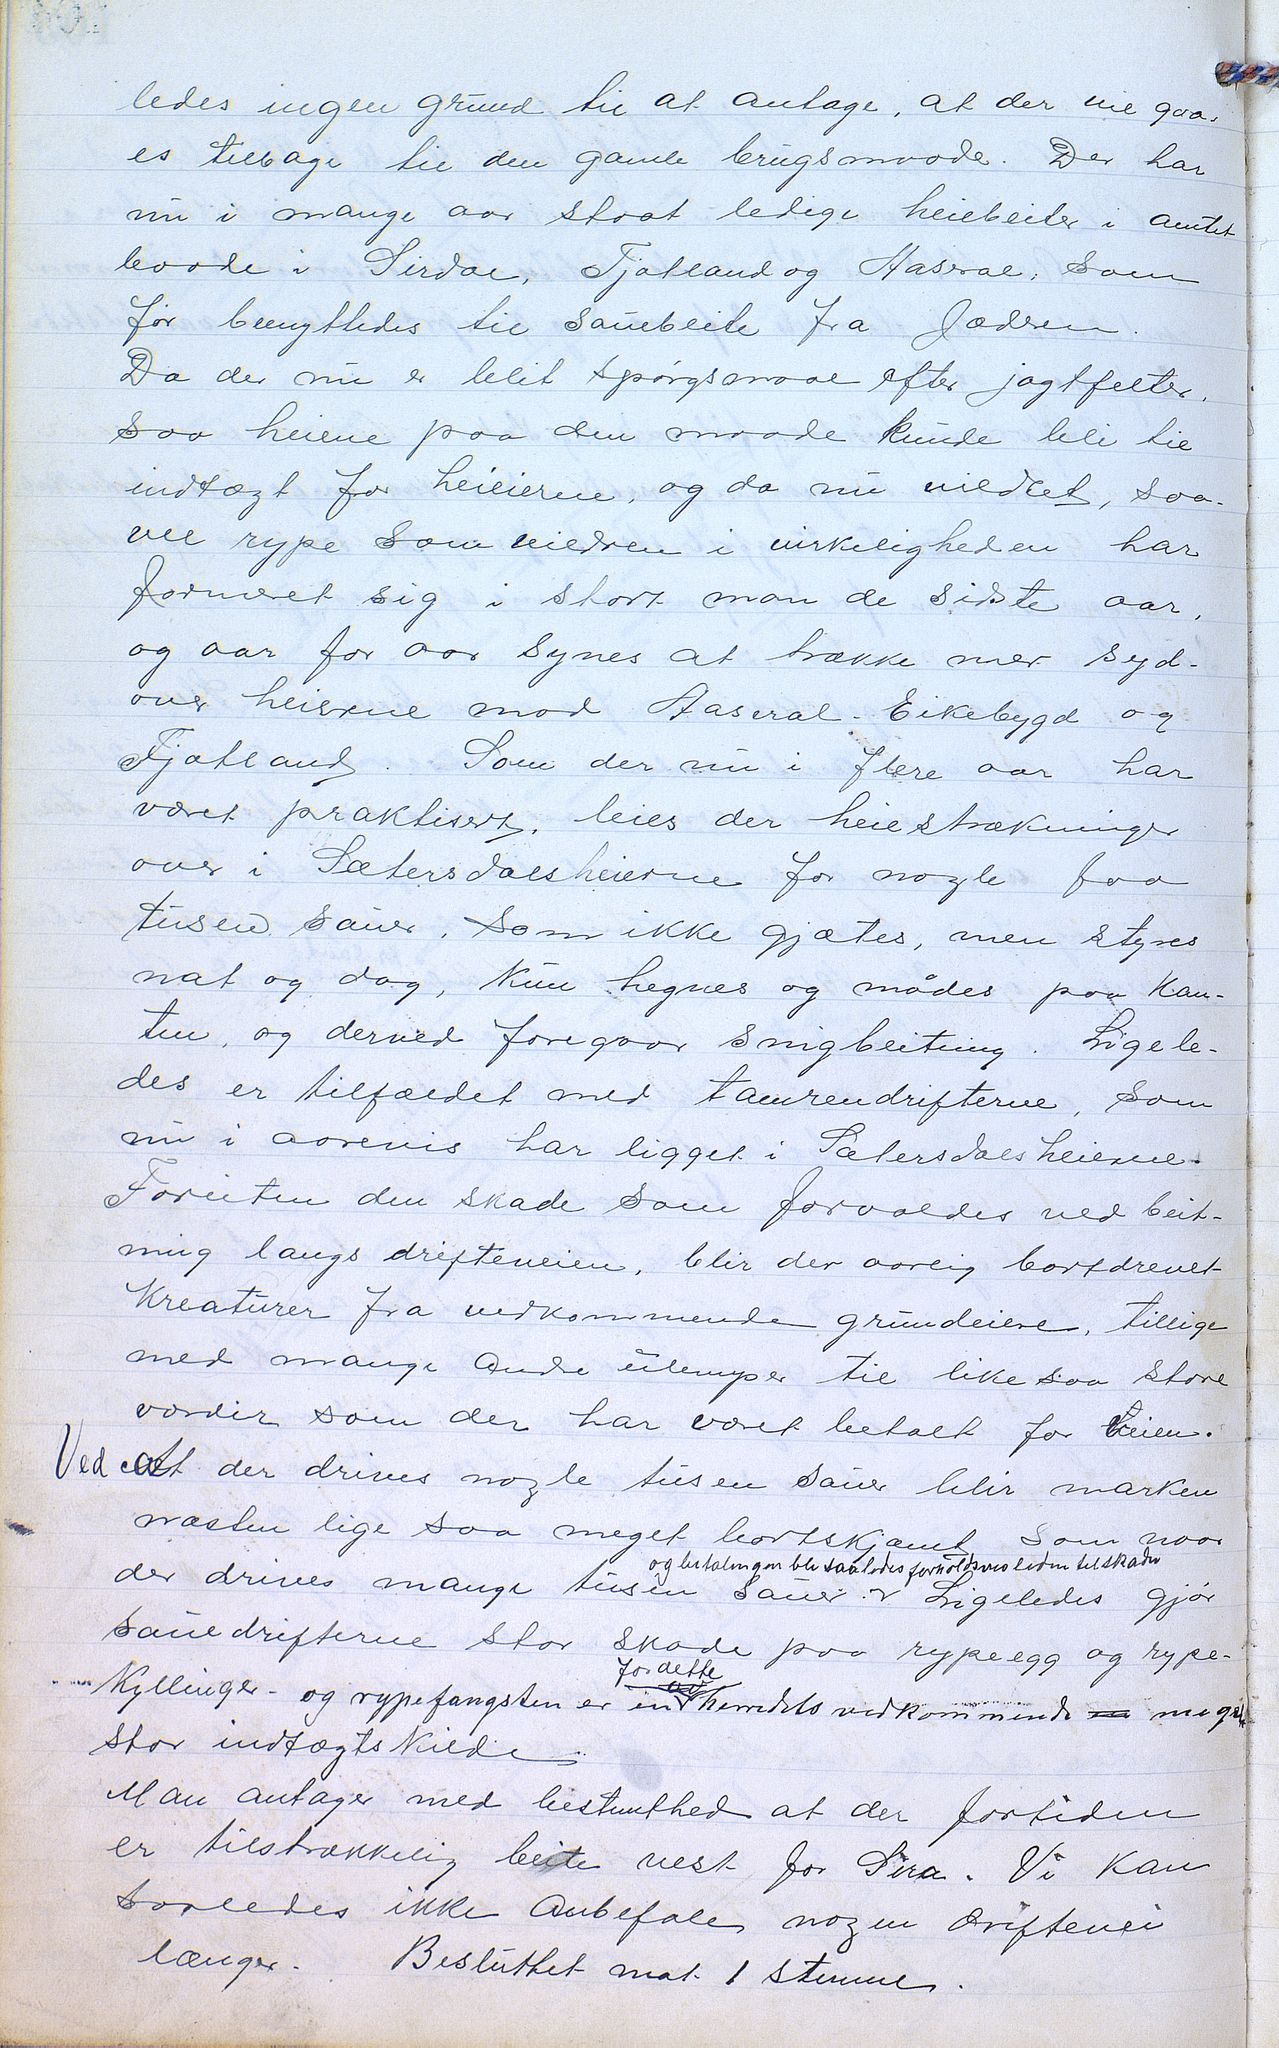 ledes ingen grund til at antage, at der vil gaa-
es tilbage til den gamle brugsmaade. Der har
nu i mange aar staat ledige heiebeiter i amtet
baade i Sirdal, Fjotland og Aaseral, som
før benyttedes til sauebeite fra Jædren.
Da der nu er blit spørgsmaal efter jagtfelter,
saa heiene paa den maade kunde bli til
indtægt for heieierne, og da nu vildtet, saa-
vel rype som vildren i virkeligheden har
formeret sig i stort mon de sidste aar,
og aar for aar synes at trække mer syd-
over heierne mod Aaseral - Eikebygd og
Fjotland. Som der nu i flere aar har
været praktisert, leies der heiestrækninger
over i Sætersdalsheierne for nogle faa
tusen sauer, som ikke gjætes, men styres
nat og dag, kun hegnes og mødes paa kan-
ten, og derved foregaar snigbeitning. Ligele-
des er tilfældet med tamrendrifterne, som
nu i aarevis har ligget i Sætersdalsheierne.
Foruten den skade som forvoldes ved beit-
ning langs drifteveien, blir der aarlig bortdrevet
kreaturer fra vedkommende grundeiere, tillige
med mange andre ulemper til like saa store
værdier som der har været betalt for heien.
Ved at der drives nogle tusen sauer blir marken
næsten lige saa meget bortskjæmt som naar
og betalingen bli saaledes forholdsvis liden til skaden
der drives mange tusen sauer. v Ligeledes gjør
sauedrifterne stor skade paa rypeegg og rype-
for dette
kyllinger - og rypefangsten er en herredets vedkommende meget
stor indtægtskilde.
Man antager med bestemthed at der fortiden
er tilstrækkelig beite vest for Sira. Vi kan
saaledes ikke anbefale nogen driftevei
længer. Besluttet mot 1 stemme.